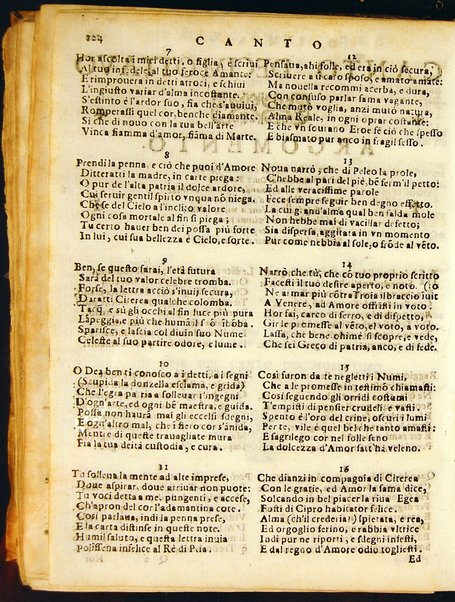 224
CANTO
7
Hor ascolta i miei detti, o figlia, e scriui
Al tuo infedele, al tuo feroce Amante:
E rimprouera in detti atroci, e schiui
L'ingiusto variar d'alma incostante.
S'estinto è l'ardor suo, fia che s'auuiui,
Romperassi quel cor, benche diamante.
Sì che di nouo con la tua bell'arte
Vinca fiamma d'amor, fiamma di Marte.
8
Prendi la penna, e ciò che puoi d'Amore
Ditteratti la madre, in carte piega:
O pur de l'alta patria il dolce ardore,
Cui seruir gentil spirto vnqua nõ niega.
Che se del Cielo a l'inclito valore
Ogni cosa mortale al fin si piega;
Tu certo hauer ben dei possa più forte
In lui, cui sua bellezza è Cielo, e sorte.
9
Ben, se questo farai, l'età futura
Sarà del tuo valor celebre tromba.
Forse, la lettera acciò s'inuij secura,
Daratti Citerea qualche colomba.
Tacq, e sù gli occhi al fin luce più pura
Lãpeggia, e più che humã
Sparisce, e lascia col diuin suo Nume
Celeste al suo partire odore, e lume.
10
O Dea ben ti conosco a i detti, a i segni
(Stupida la donzella esclama, e grida)
Che l'egra patria a solleuar t'ingegni
D'ogn'arte, ed ogni bẽ maestra, e guida.
Possa non haurà mai gli eccelsi sdegni,
E ogn'altro mal, che'i fiero cor s'ãnida,
Mentr'e di queste trauagliate mura
Fia la tua deità custodia, e cura.
11
Tu solleua la mente ad alte imprese,
Doue aspirar, doue arriuar non puote:
Tu voci detta a me, pungenti, e accese,
Ch'apron del cor l'adamantina cote.
Così parlaua, indi la penna prese,
E la carta distinse in queste note.
Humil saluto, e questa lettera inuia
Polissena infelice al Rè di Pilia.
12
Pensaua, ahi folle, ed era in ciò secura,
Scriuere a vn caro sposo, e amato amãte:
Ma nouella recommi acerba, e dura,
Con confuso parlar fama vagante,
Che muto voglia, anzi muto natura,
Alma Reale, in ogni oprar costante:
E che vn sourano Eroe fè ciò che spesso
E biasmato pur anco in fragil sesso.
13
Noua narrò, che di Peleo la prole,
C'hebbe al pari del piè, bẽ ferm'il petto:
Ed alle veracissime parole
Fece sempre seguir ben degno effetto.
La cui grand'alma qual ben salda mole
Non hebbe mai di vacillar difetto;
Sia dispersa, aggirata in vn momento
Pur come nebbia al sole, o frõde al vẽto.
14
Narrò che tù, che cō tuo proprio scritto
Facesti il tuo desire aperto, e noto.
Ne armar più cōtra Troia il braccio iuuit
A Venere, ad Amore offristi in voto.
Hor sai, carco di ferro, e di dispetto,
Gir le promesse al vẽto, el voto, a voto.
Lassa, che bene ohimè si scopre, e vede,
Che sei Greco di patria, anco, e di fede.
15
Così furon da te negletti i Numi,
Che a le promesse in testimō chiamasti:
Così seguendo gli orridi costumi
T'empisti di pensier crudeli, e vasti.
Spento è l'oro del crine, oscuri i lumi
Per te, vile è quel bel che tanto amasti:
E sagrilego cor nel folle seno
La dolcezza d'Amor fatt'ha veleno.
16
Che dianzi in compagnia di Citerea
Con le gratie, ed Amor la fama dice,
Solcando in bel piacer la riua Egea
Fosti di Cipro habitator felice.
Alma (ch'il crederia?) spietata, e rea,
Ed orgoglio ferino, e rabbia vltrice
Indi pur ne riporti, e sdegni infesti,
E dal regno d'Amore odio togliesti.
Ed